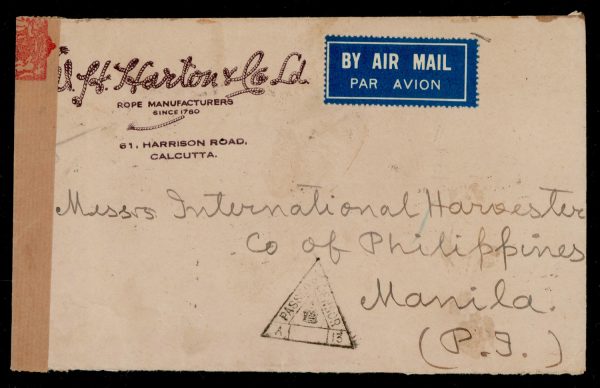 W. H. Harton & Co Ld
ROPE MANUFACTURERS
SINCE 1780
61, HARRISON ROAD,
CALCUTTA.
BY AIR MAIL
PAR AVION
Messrs International Harvester
Co of Philippines
Manila.
(P.I.)
PASSED
A